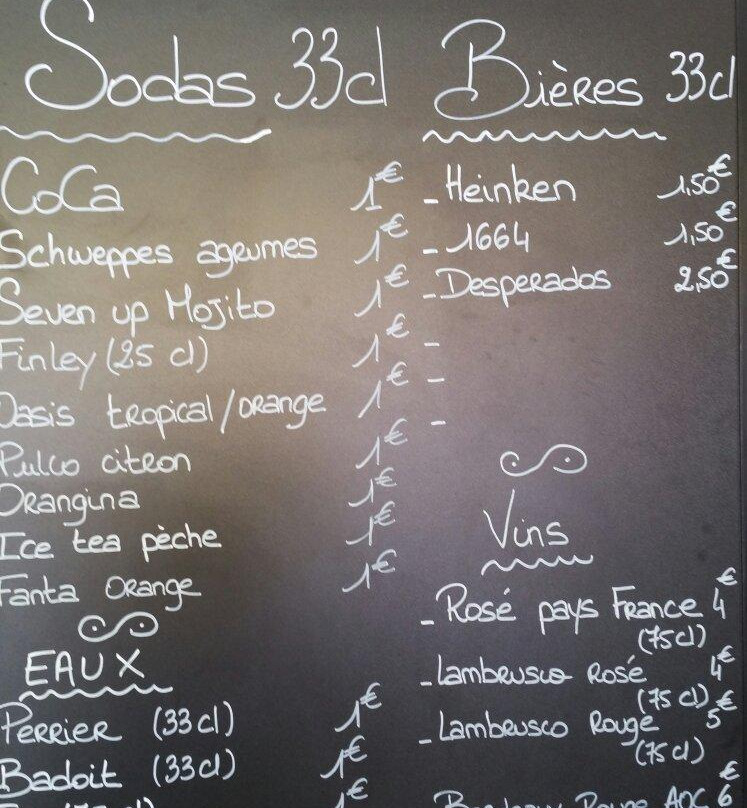 Sodas 33cl
CoCa 1€
Schweppes agrumes 1€
Seven up Mojito 1€
Finley (25 cl) 1€
Oasis tropical/orange 1€
Pulco citron 1€
Orangina 1€
Ice tea pèche 1€
Fanta Orange 1€
EAUX
Perrier (33cl) 1€
Badoit (33cl) 1€
1€
Bières 33cl
- Heinken 1,50€
- 1664 1,50€
- Desperados 2,50€
-
-
-
Vins
- Rosé pays France 4€
(75cl)
- Lambrusco Rosé 4€
(75 cl)
- Lambrusco Rouge 5€
(75cl)
Bordeaux Rouge AOC 6€